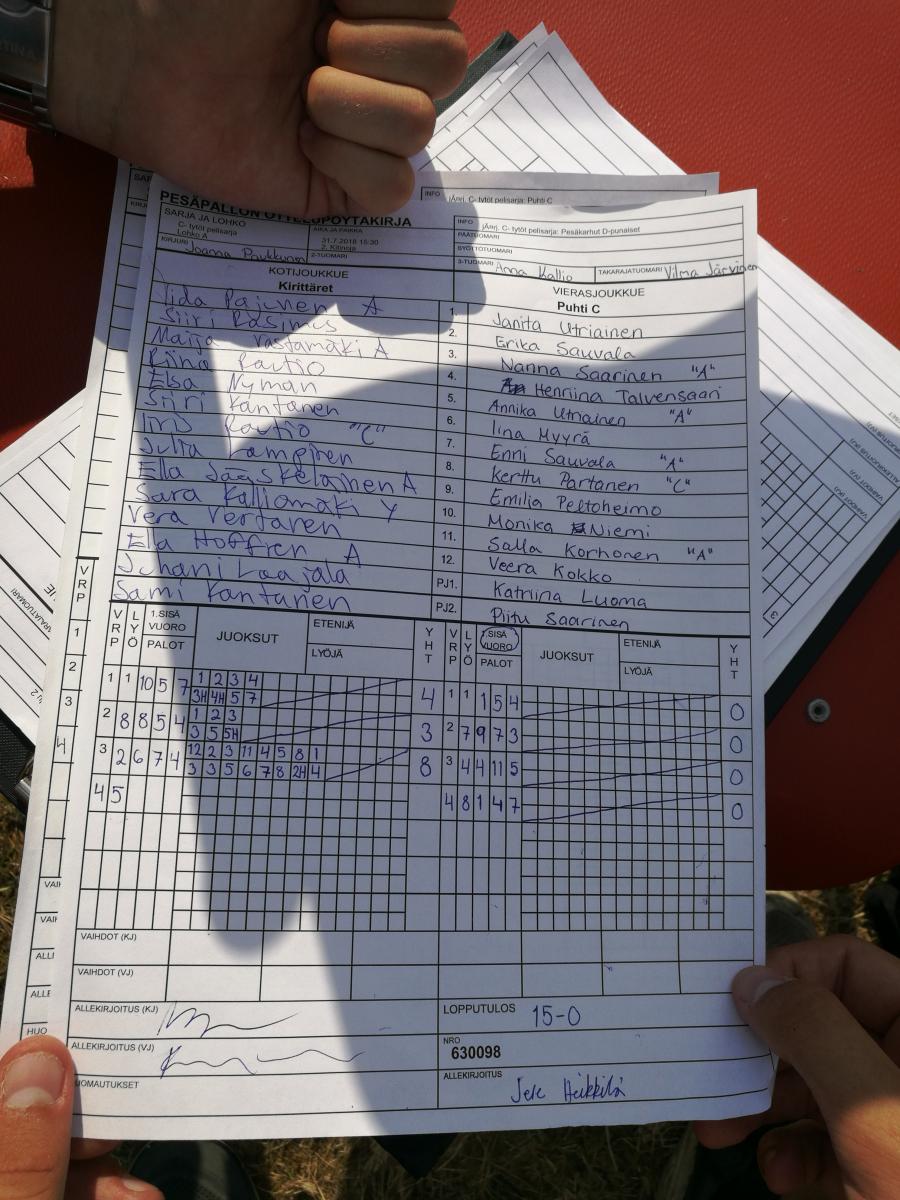 INFO
jÄnrj. C- tytöt pelisarja: Puhti C
PESÄPALLON OTTELUPÖYTÄKIRJA
SARJA JA LOHKO
C- tytöt pelisarja
Lohko A
AIKA JA PAIKKA
31.7.2018 15:30
2. Kitinoja
INFO
jÄnrj. C- tytöt pelisarja: Pesäkarhut D-punaiset
PÄÄTUOMARI
SYÖTTÖTUOMARI
KIRJURI Joanna Paukkunen
2-TUOMARI
3-TUOMARI Anna Kallio
TAKARAJATUOMARI Vilma Järvinen
KOTIJOUKKUE
Kirittäret
VIERASJOUKKUE
Puhti C
Iida Pajunen A
1. Janita Utriainen
Siiri Räsimus
2. Erika Sauvala
Maija Västämäki A
3. Nanna Saarinen "A"
Riina Rautio
4. Henriina Talvensaari
Elsa Nyman
5. Annika Utriainen "A"
Siiri Kantanen
6. Iina Myyrä
Iiris Rautio "C"
7. Enni Sauvala "A"
Julia Lampinen
8. Kerttu Partanen "C"
Ella Jääskeläinen A
9. Emilia Peltoheimo
Sara Kalliomäki Y
10. Monika Niemi
Vera Vertanen
11. Salla Korhonen "A"
Ella Hoffren A
12. Veera Kokko
Juhani Laajala
PJ1. Katriina Luoma
Sami Kantanen
PJ2. Piitu Saarinen
VRP LYÖ 1.SISÄ VUORO PALOT JUOKSUT ETENIJÄ LYÖJÄ YHT VRP LYÖ SISÄ VUORO PALOT JUOKSUT ETENIJÄ LYÖJÄ YHT
1 1 10 5 7 1 2 3 4 4 1 1 1 5 4 0
3H 4H 5 7
2 8 8 5 4 1 2 3 3 2 7 9 7 3 0
3 5 5H
3 2 6 7 4 12 2 3 11 4 5 8 1 8 3 4 4 11 5 0
3 3 5 6 7 8 2H 4
4 5 4 8 1 4 7 0
VAIHDOT (KJ)
VAIHDOT (VJ)
ALLEKIRJOITUS (KJ)
LOPPUTULOS 15-0
ALLEKIRJOITUS (VJ)
NRO
630098
ALLEKIRJOITUS
Jere Heikkilä
UOMAUTUKSET
VRP
1
2
3
4
ALLI
ALLE
HUO